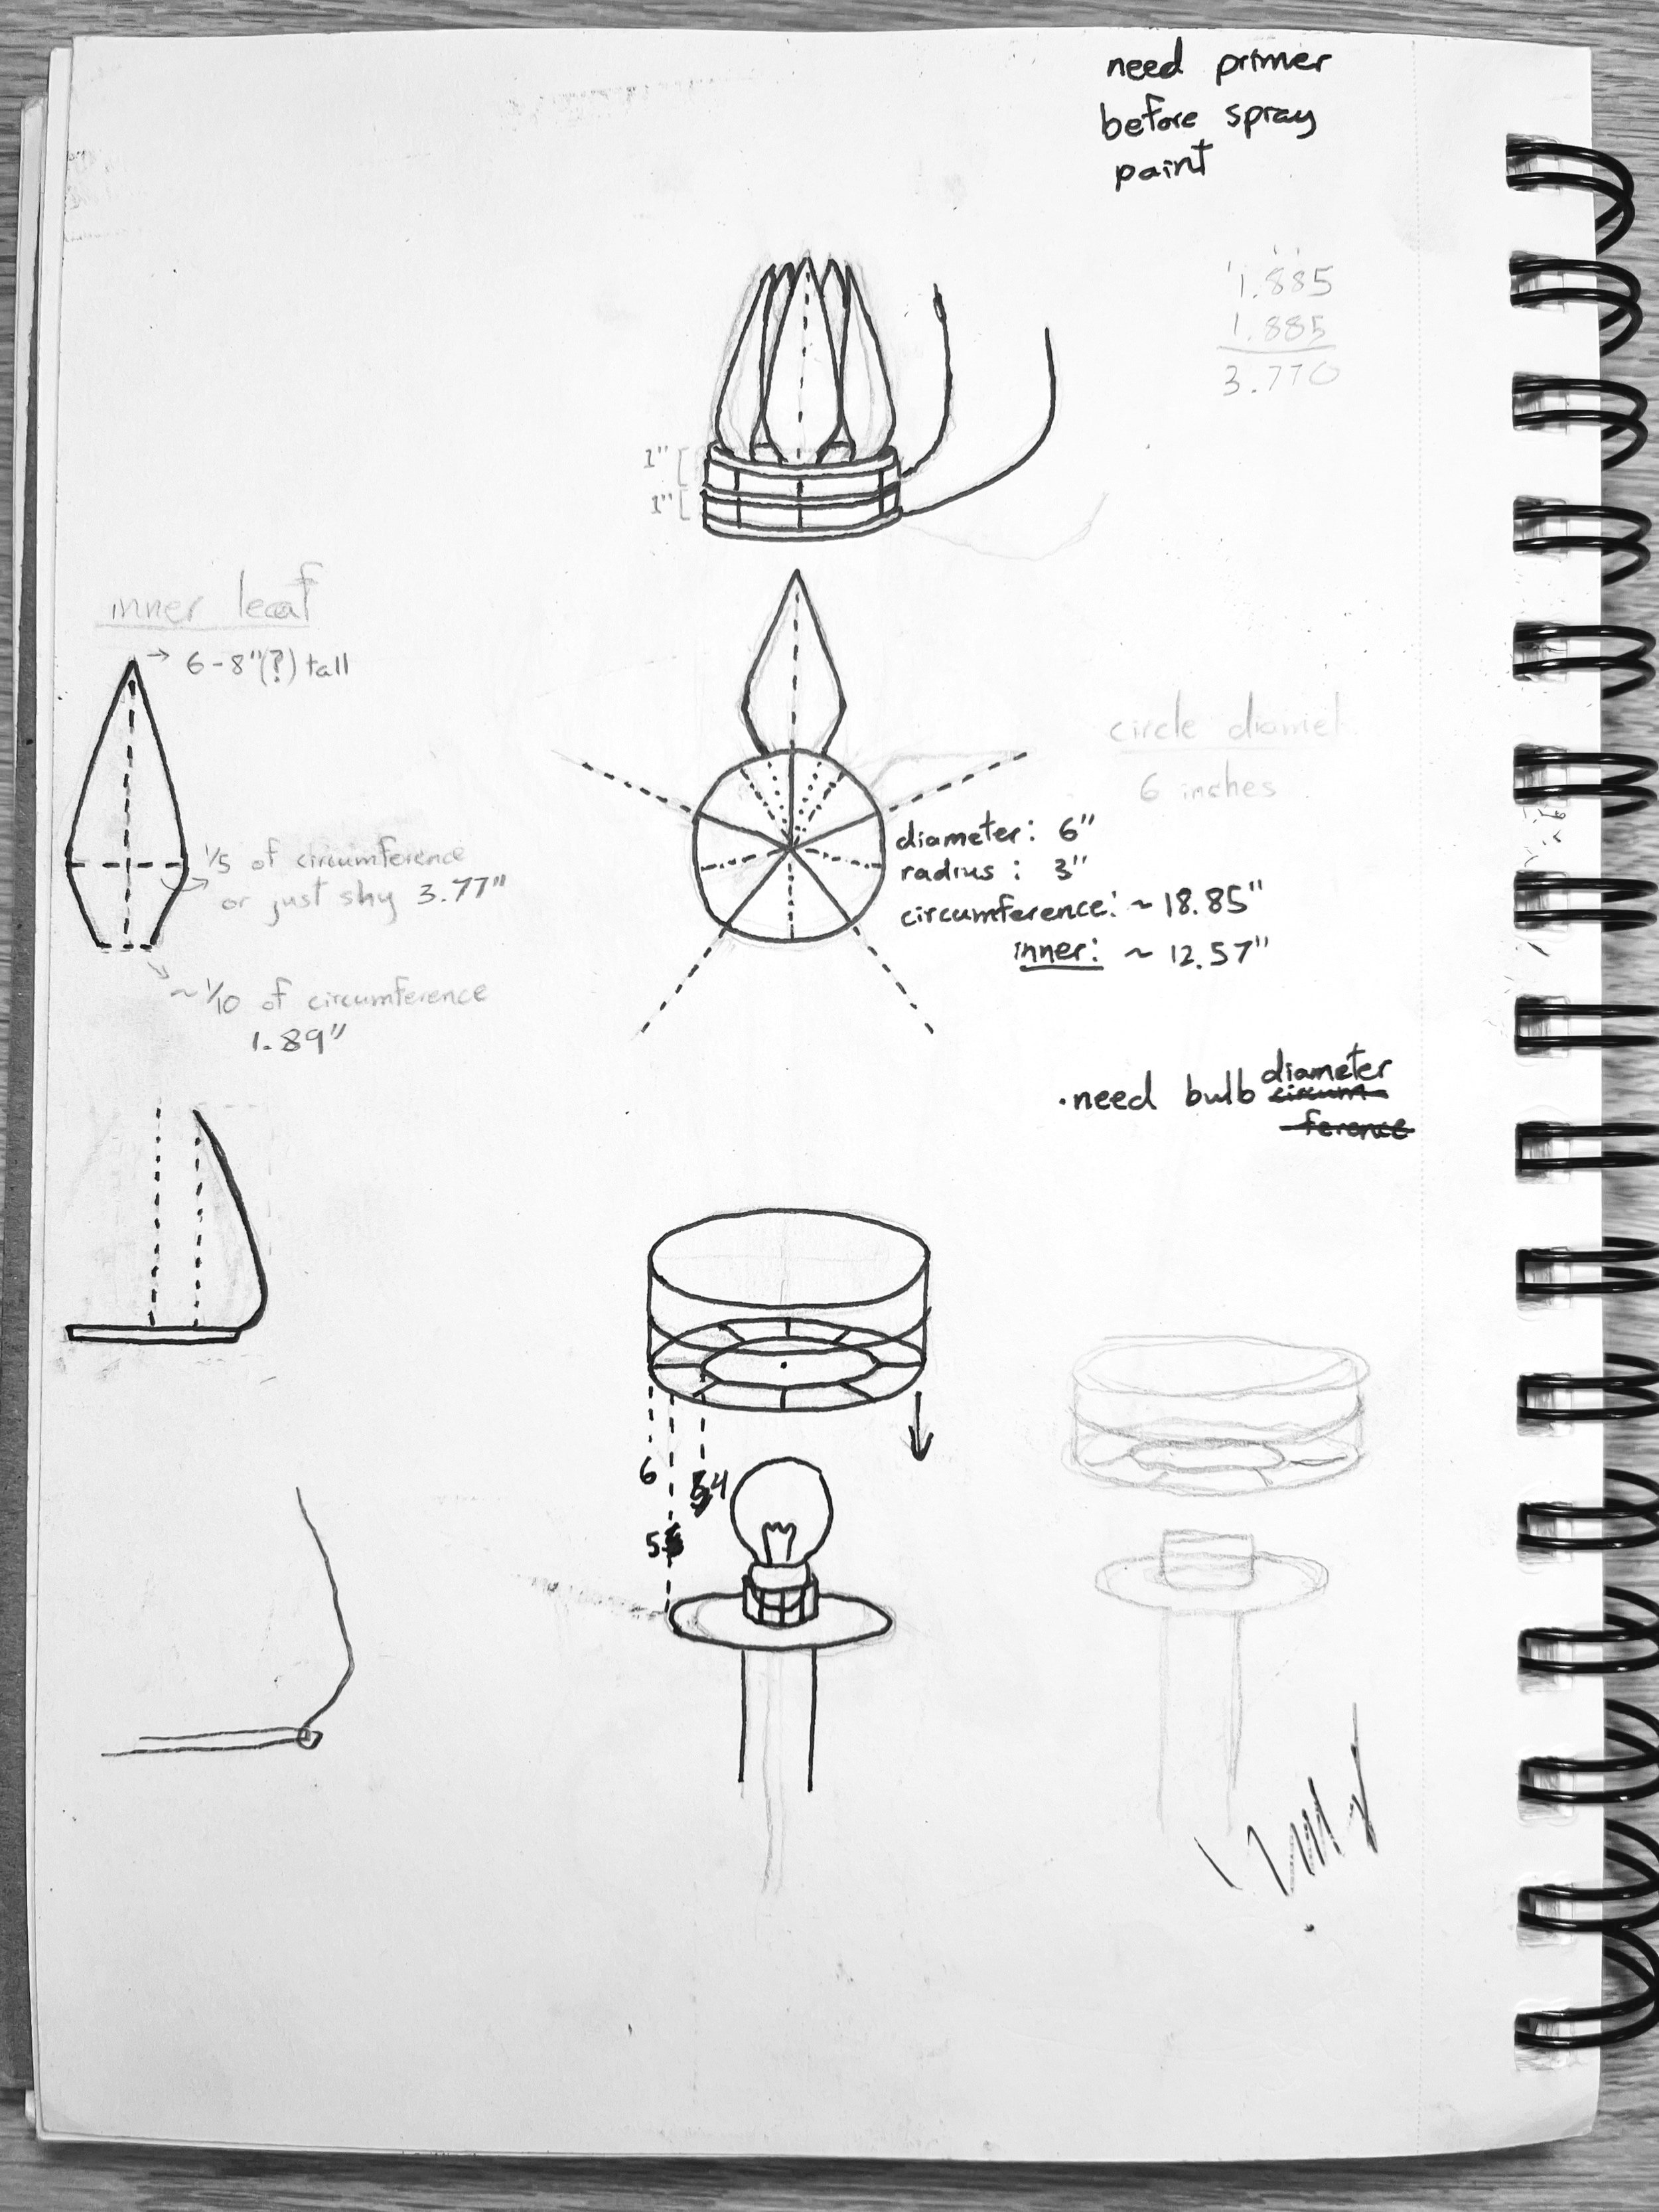 need primer
before spray
paint
1.885
1.885
3.770
1"
1"
inner leaf
6-8"(?) tall
circle diamet
6 inches
1/5 of circumference
or just shy 3.77"
diameter: 6"
radius: 3"
circumference: ~18.85"
inner: ~12.57"
~1/10 of circumference
1.89"
·need bulb diameter
circum-
ference
6
4
5